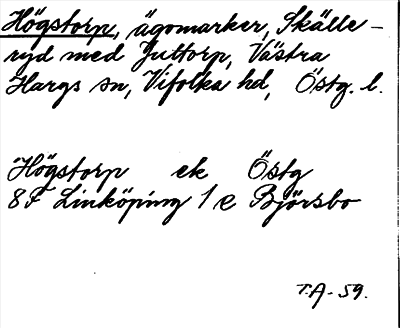 Högstorp, ägomarker, Skälle-
ryd med Juttorp, Västra
Hargs sn, Vifolka hd, Östg. l.
Högstorp ek Östg
8F Linköping 1 e Björsbo
T.A-59.